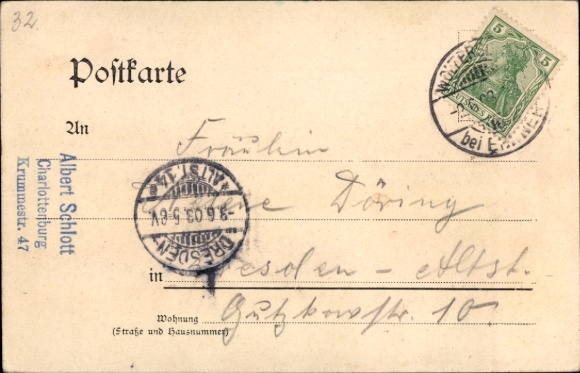 32.
Postkarte
An
Fräulein
Döring
in Dresden - Altst.
Wohnung
(Straße und Hausnummer)
Gutzkowstr. 10
Albert Schlott
Charlottenburg
Krummestr. 47
DRESDEN
* ALTST. 14
-3.6.03.5-6V.
WOLTERS
bei ERKNER
5 5